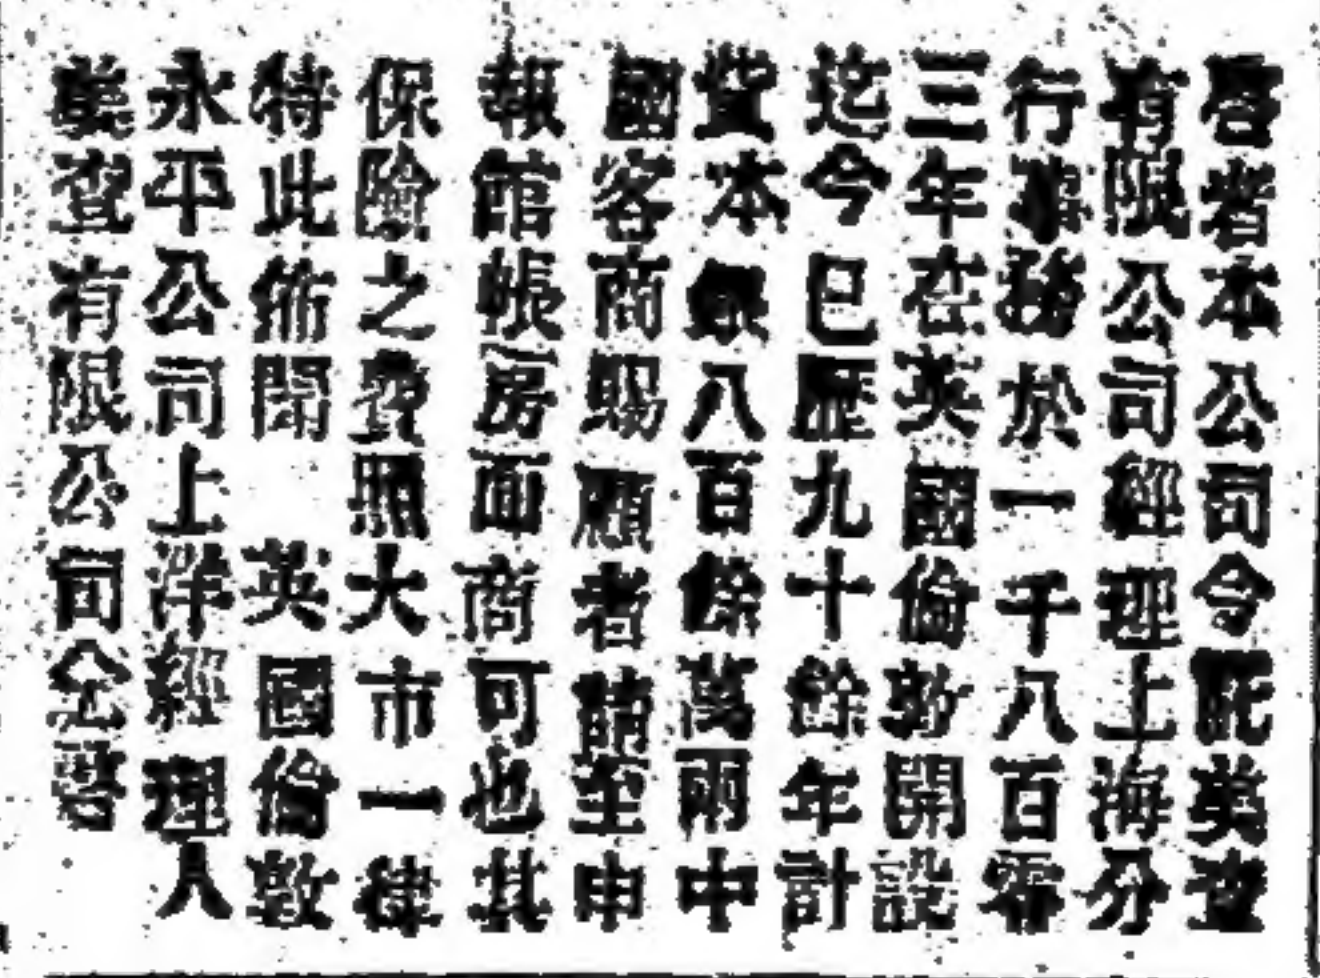 啓者本公司今託英查
有限公司經理上海分
行事務於一千八百零
三年在英國倫敦開設
迄今已歷九十餘年計
資本銀八百餘萬兩中
國客商賜顧者請至申
報館帳房面商可也其
保險之費照大市一律
特此佈聞 英國倫敦
永平公司上洋經理人
美查有限公司仝啓